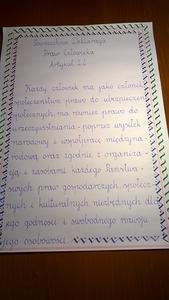 Powszechna Deklaracja
Praw Człowieka
Artykuł 22
Każdy człowiek ma jako członek
społeczeństwa prawo do ubezpieczeń
społecznych, ma również prawo do
urzeczywistniania - poprzez wysiłek
narodowy i współpracę międzyna-
rodową oraz zgodnie z organiza-
cją i zasobami każdego Państwa -
swych praw gospodarczych, społecz-
nych i kulturalnych, niezbędnych dla
jego godności i swobodnego rozwoju
jego osobowości.